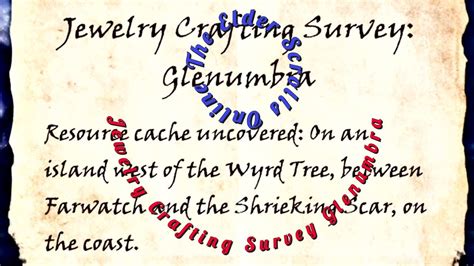 Jewelry Crafting Survey:
Glenumbra
The Elder Scrolls Online
Resource cache uncovered: On an
island west of the Wyrd Tree, between
Farwatch and the Shrieking Scar, on
the coast.
Jewelry Crafting Survey Glenumbra